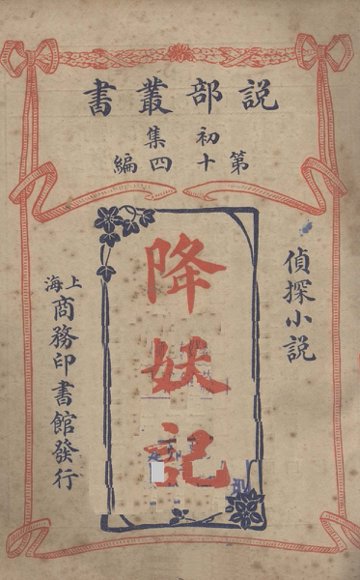 説部叢書
初集
第十四編
偵探小説
降妖記
上海商務印書館發行